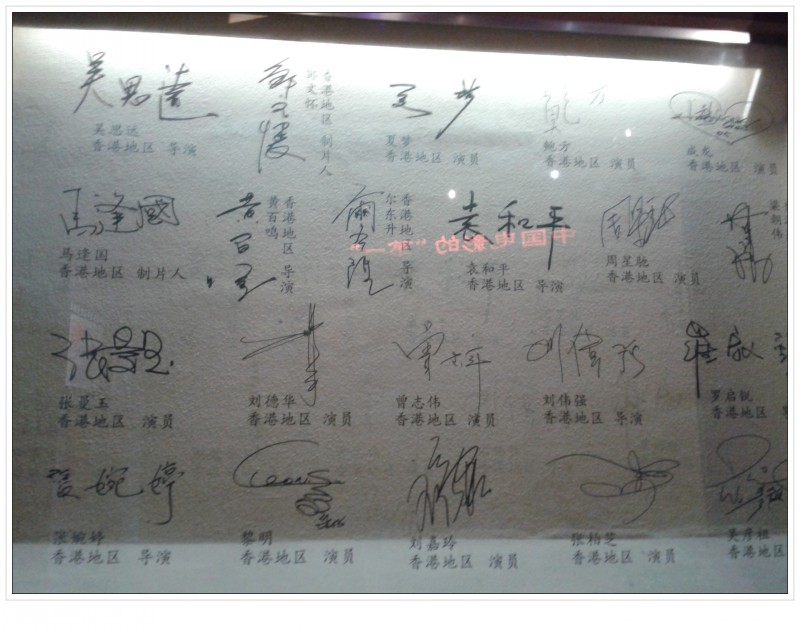 吴思远
吴思远
香港地区 导演
邹文怀
香港地区 制片人
夏梦
夏梦
香港地区 演员
鲍方
鲍方
香港地区 演员
成龙
香港地区
马逢国
马逢国
香港地区 制片人
黄百鸣
黄百鸣
香港地区 导演
尔冬升
香港地区 导演
袁和平
袁和平
香港地区 导演
中国电影的“第一”
周星驰
香港地区 演员
梁朝伟
张曼玉
香港地区 演员
刘德华
香港地区 演员
曾志伟
香港地区 演员
刘伟强
刘伟强
香港地区 导演
罗启锐
香港地区
张婉婷
香港地区 导演
黎明
香港地区 演员
刘嘉玲
香港地区 演员
张柏芝
香港地区 演员
吴彦祖
香港地区